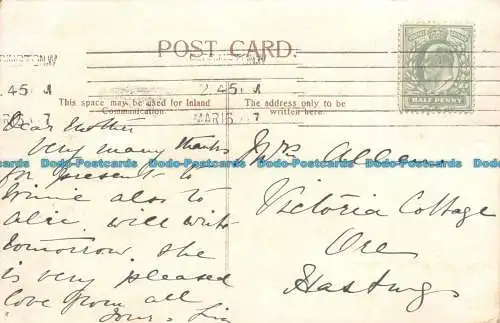 POST CARD.
2 45 1
MAR 16 7
HALF PENNY
This space may be used for Inland
Communication.
The address only to be
written here.
Dear Mother
Very many thanks
for present to
Winnie also to
Alec. will write
tomorrow. She
is very pleased
love from all
Yours,
Mrs
Victoria Cottage
Ore
Hastings
Dodo-Postcards Dodo-Postcards Dodo-Postcards Dodo-Postcards Dodo-Postcards